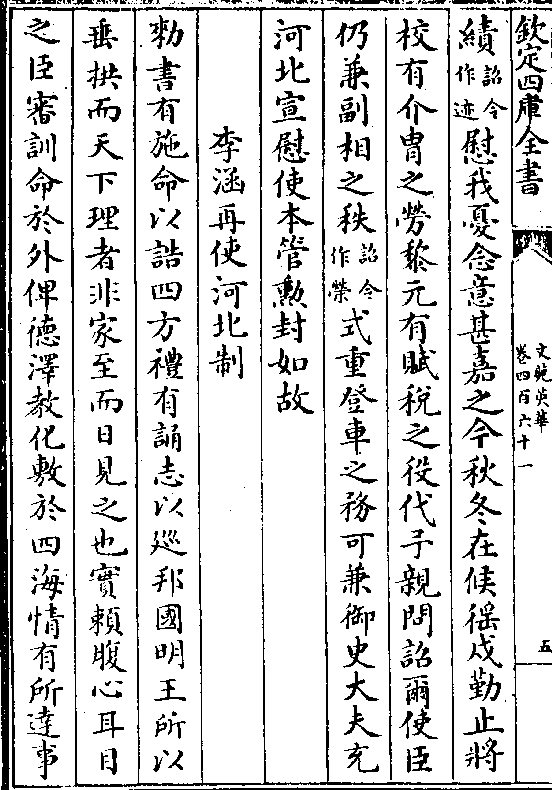 欽定四庫全書
文苑英華
卷四百六十一
五
績詔令作迹慰我憂念意甚嘉之今秋冬在候徭戍勤止將
校有介胄之勞黎元有賦稅之役代予親問詔爾使臣
仍兼副相之秩詔令作榮式重登車之務可兼御史大夫充
河北宣慰使本管勲封如故
李涵再使河北制
勑書有施命以誥四方禮有誦志以巡邦國明王所以
垂拱而天下理者非家至而日見之也實頼腹心耳目
之臣審訓命於外俾徳澤教化敷於四海情有所達事